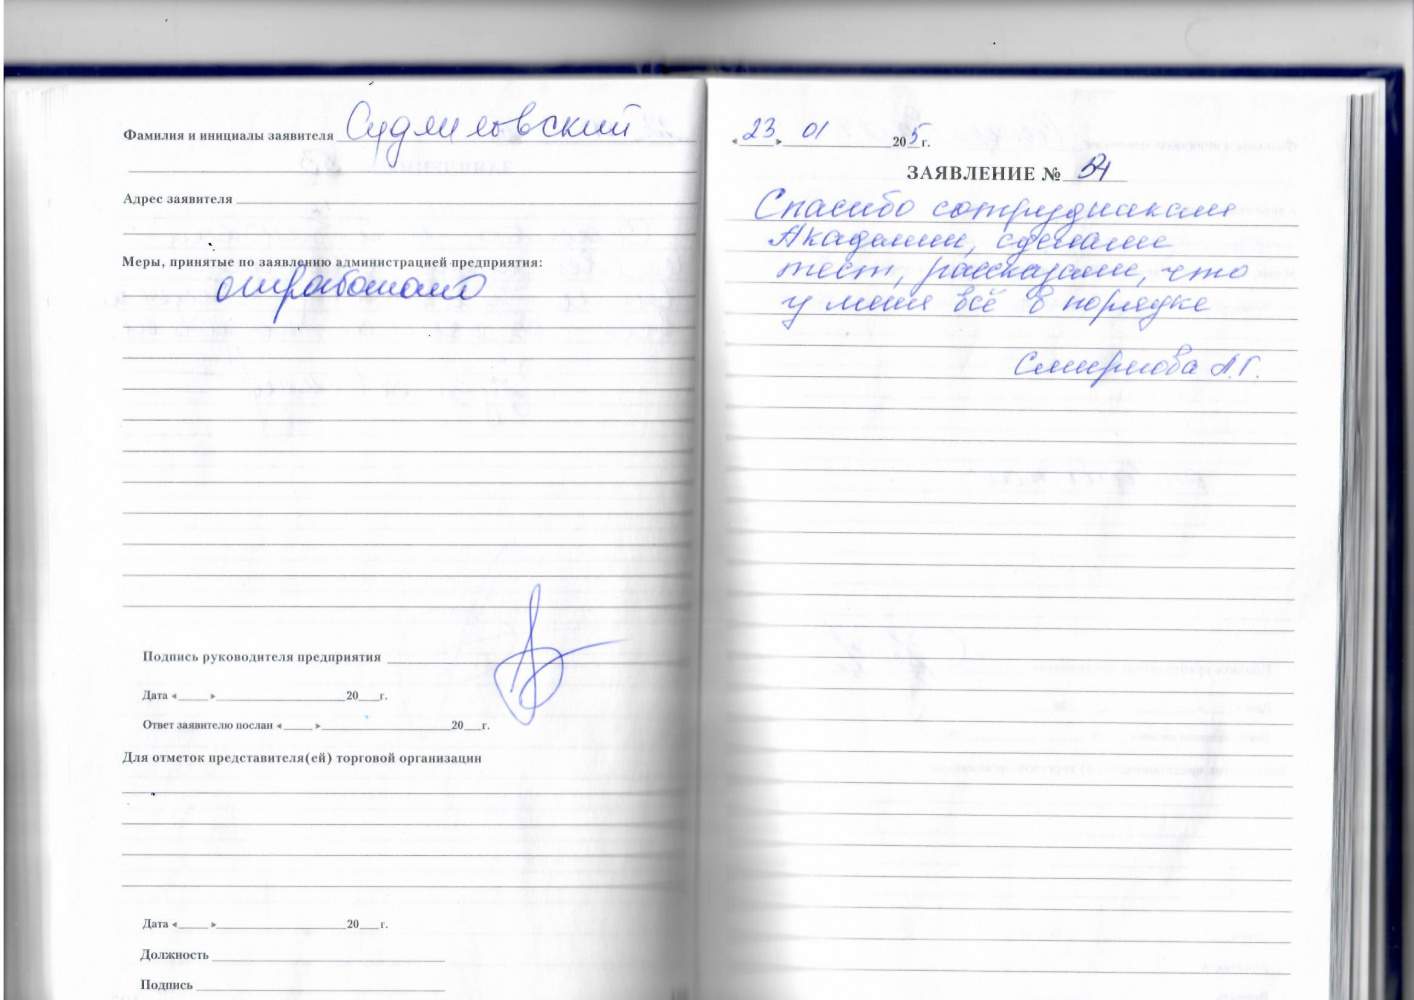 Фамилия и инициалы заявителя Судиловский
Адрес заявителя
Меры, принятые по заявлению администрацией предприятия:
отработано
Подпись руководителя предприятия
Дата «____» ____________ 20__г.
Ответ заявителю послан «____» ____________ 20__г.
Для отметок представителя(ей) торговой организации
Дата «____» ____________ 20__г.
Должность
Подпись
«23» 01 205г.
ЗАЯВЛЕНИЕ № 54
Спасибо сотрудникам
Академии, сделали
тест, рассказали, что
у меня всё в порядке
Смирнова А.Г.